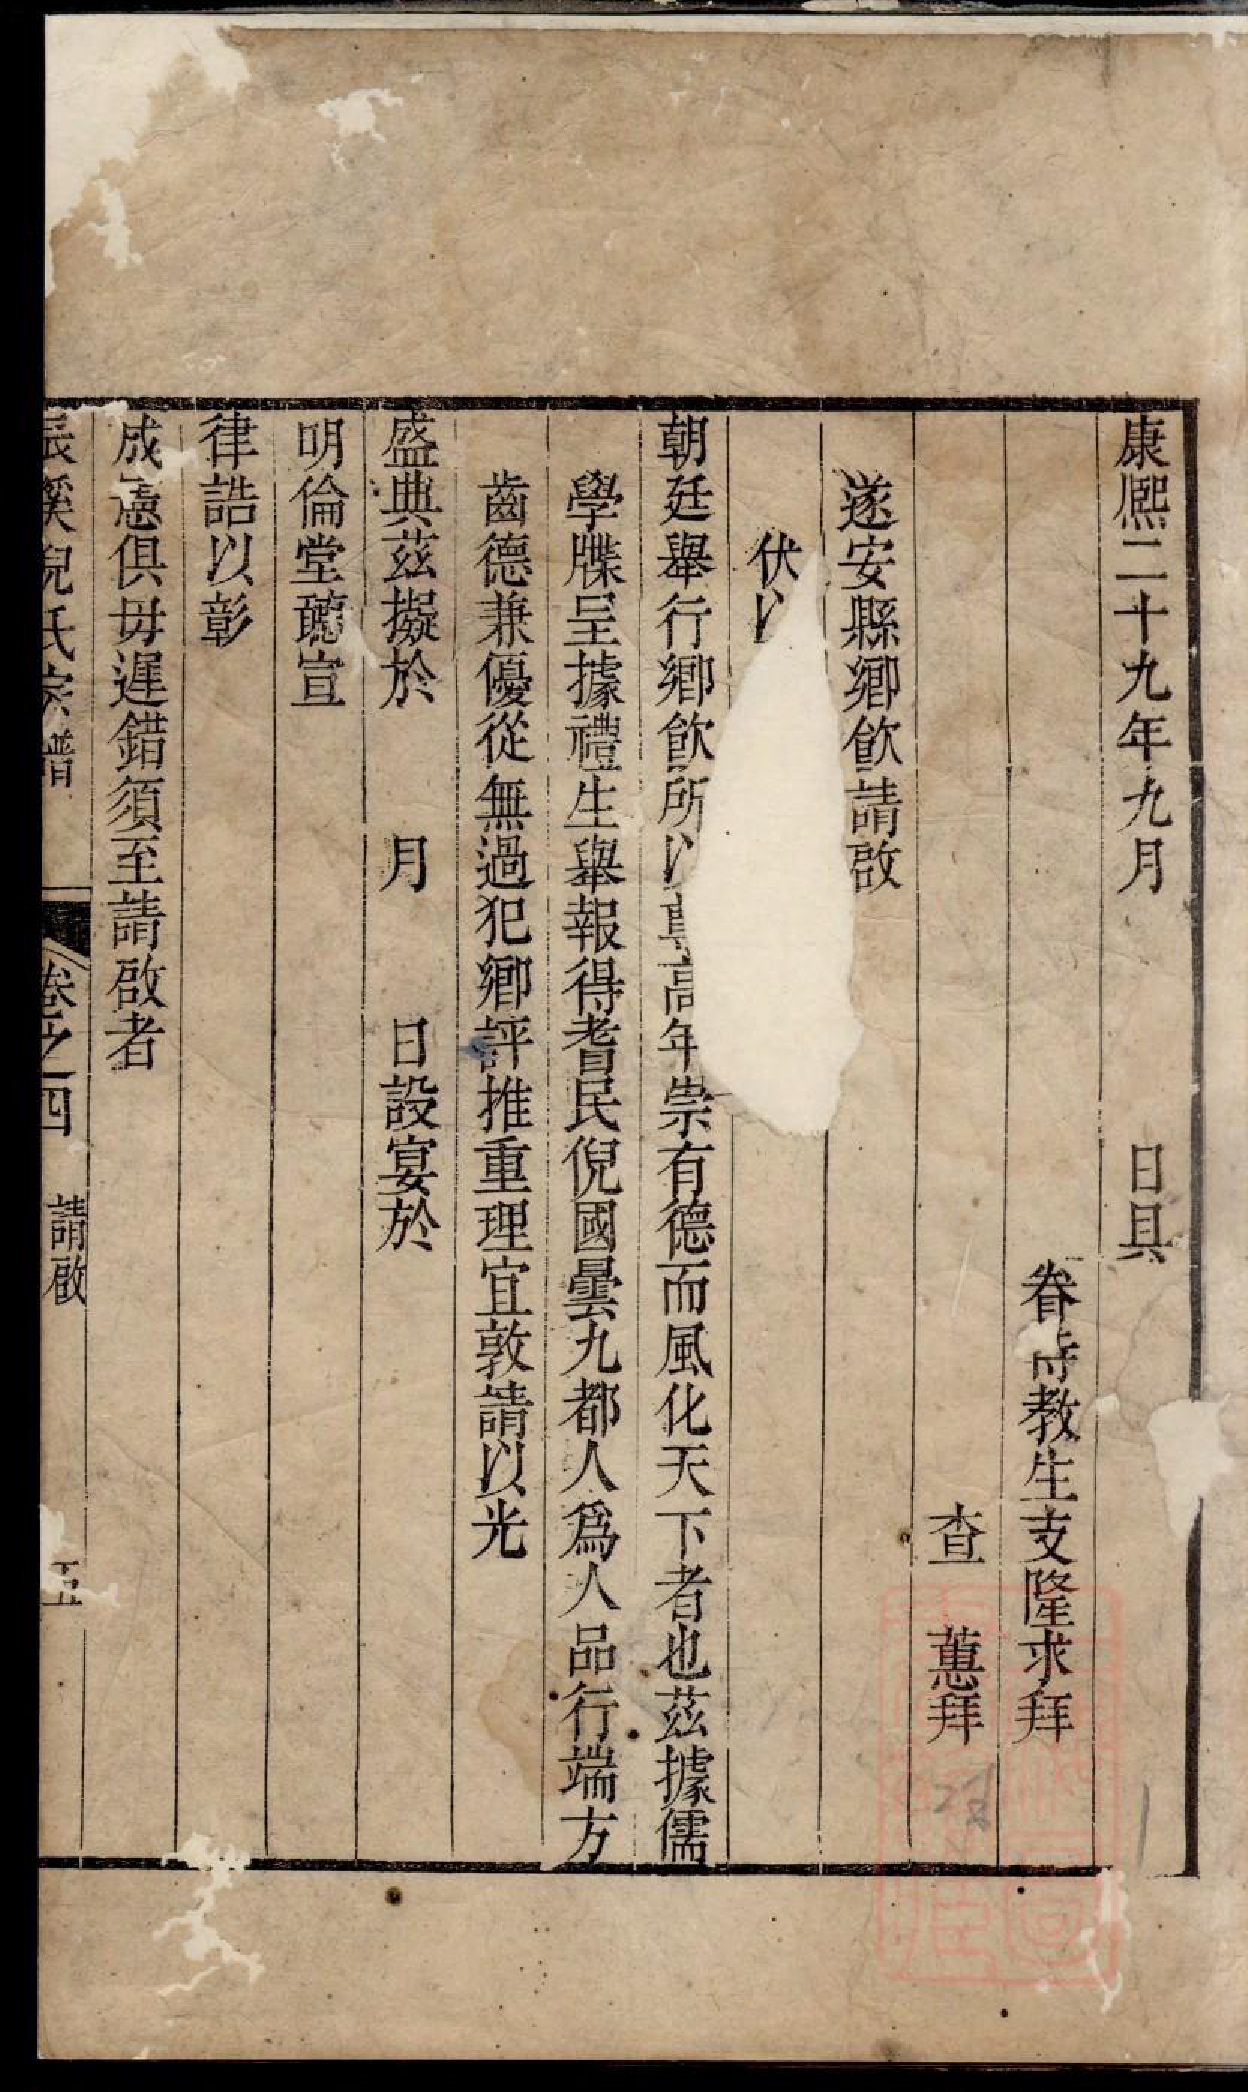 康熙二十九年九月　日具
眷侍教生支隆求拜
查　蕙拜
遂安縣鄉飲請啟
伏以
朝廷舉行鄉飲所以尊高年崇有德而風化天下者也茲據儒
學牒呈據禮生舉報得耆民倪國曇九都人爲人品行端方
齒德兼優從無過犯鄉評推重理宜敦請以光
盛典茲擬於　月　日設宴於
明倫堂聽宣
律誥以彰
成憲俱毋遲錯須至請啟者
辰溪倪氏宗譜　卷之四　請啟　五